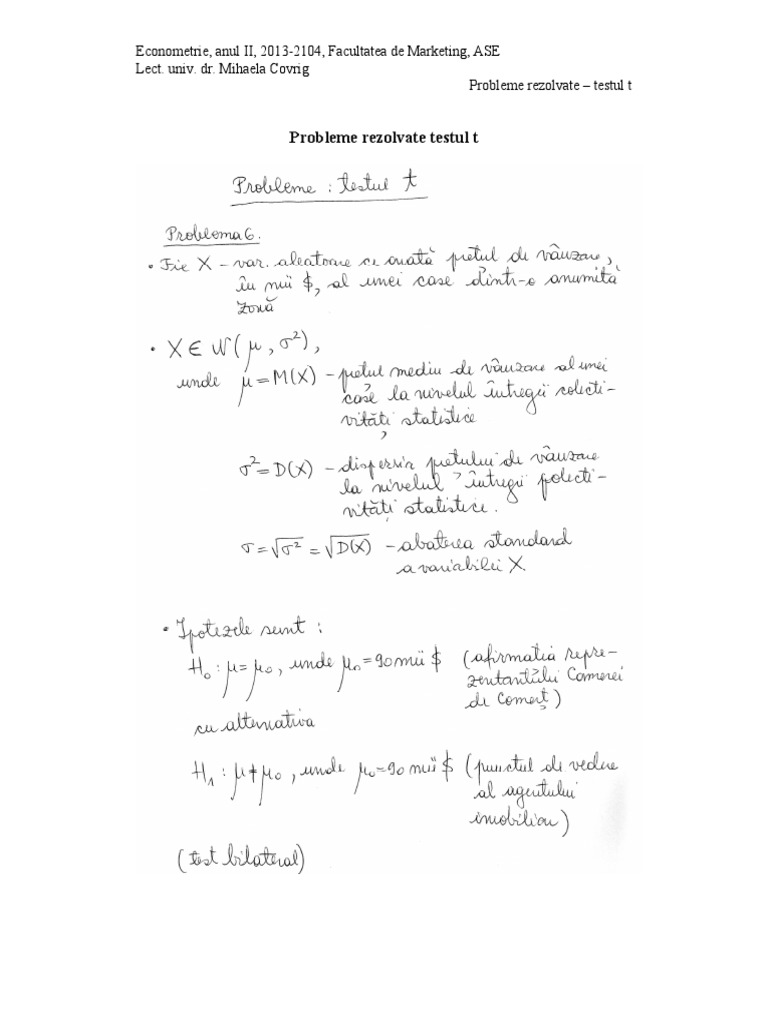 Econometrie, anul II, 2013-2104, Facultatea de Marketing, ASE
Lect. univ. dr. Mihaela Covrig
Probleme rezolvate – testul t
Probleme rezolvate testul t
Probleme : testul t
Problema 6.
• Fie X – var. aleatoare ce arată prețul de vânzare,
în mii $, al unei case dintr-o anumită
zonă
• X ∈ N(μ, σ²),
unde μ = M(X) – prețul mediu de vânzare al unei
case la nivelul întregii colecti-
vități statistice
σ² = D(X) – dispersia prețului de vânzare
la nivelul întregii colecti-
vități statistice.
σ = √σ² = √D(X) – abaterea standard
a variabilei X.
• Ipotezele sunt :
H₀ : μ = μ₀, unde μ₀ = 90 mii $ (afirmația repre-
zentantului Camerei
de Comerț)
cu alternativa
H₁ : μ ≠ μ₀, unde μ₀ = 90 mii $ (punctul de vedere
al agentului
imobiliar)
(test bilateral)